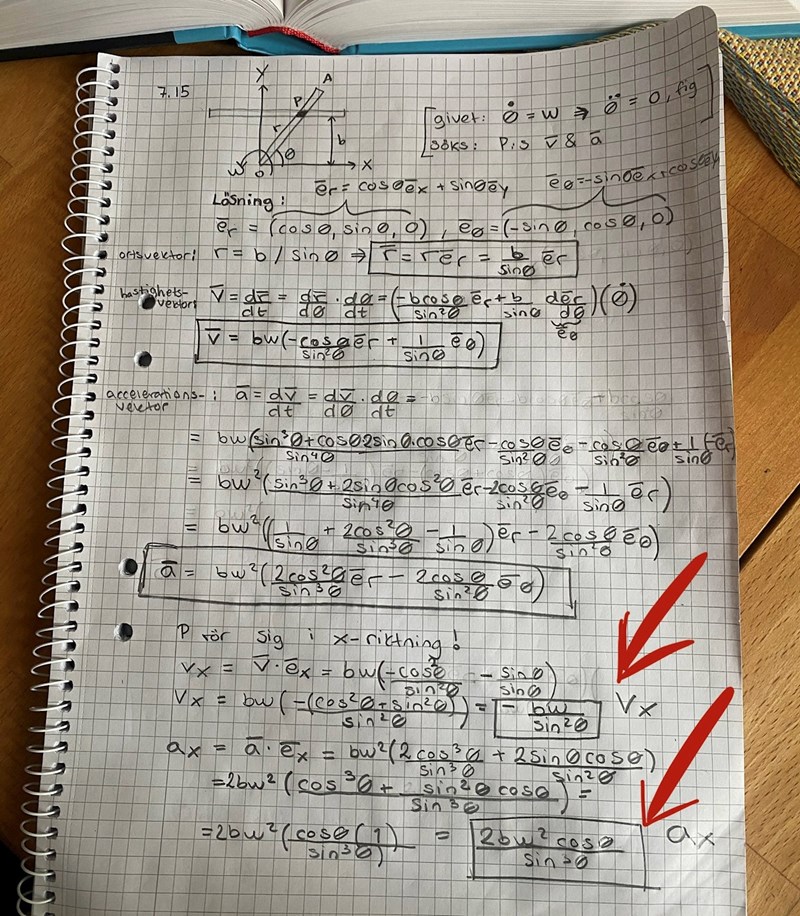 7.15
Y
A
P
r
b
θ
ω
O
X
[givet: θ̇ = ω ⇒ θ̈ = 0, fig]
[söks: P:s v̄ & ā]
ēr = cosθēx + sinθēy
ēθ = -sinθēx + cosθēy
Lösning:
ēr = (cosθ, sinθ, 0), ēθ = (-sinθ, cosθ, 0)
ortsvektor: r = b / sinθ ⇒ r̄ = rēr = b/sinθ ēr
hastighets-vektor: v̄ = dr̄/dt = dr̄/dθ · dθ/dt = (-bcosθ/sin²θ ēr + b/sinθ dēr/dθ)(θ̇)
ēθ
v̄ = bω(-cosθ/sin²θ ēr + 1/sinθ ēθ)
accelerations-vektor: ā = dv̄/dt = dv̄/dθ · dθ/dt =
= bω(sin³θ+cosθ2sinθ·cosθ/sin⁴θ ēr - cosθ/sin²θ ēθ - cosθ/sin²θ ēθ + 1/sinθ (-ēr)
= bω²(sin³θ + 2sinθcos²θ/sin⁴θ ēr - 2cosθ/sin²θ ēθ - 1/sinθ ēr)
= bω²((1/sinθ + 2cos²θ/sin³θ - 1/sinθ)ēr - 2cosθ/sin²θ ēθ)
ā = bω²(2cos²θ/sin³θ ēr - 2cosθ/sin²θ ēθ)
P rör sig i x-riktning!
vx = v̄·ēx = bω(-cos²θ/sin²θ - sinθ/sinθ)
Vx = bω(-(cos²θ-sin²θ)/sin²θ) = - bω/sin²θ Vx
ax = ā·ēx = bω²(2cos³θ/sin³θ + 2sinθcosθ/sin²θ)
= 2bω²(cos³θ + sin²θcosθ/sin³θ) =
= 2bω²(cosθ(1)/sin³θ) = 2bω²cosθ/sin³θ ax